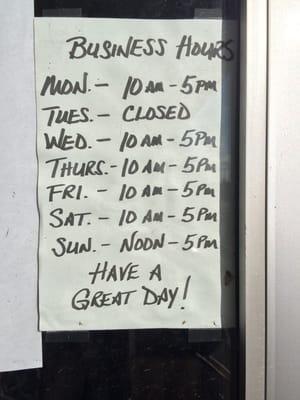 BUSINESS HOURS
MON. - 10 AM - 5 PM
TUES. - CLOSED
WED. - 10 AM - 5 PM
THURS. - 10 AM - 5 PM
FRI. - 10 AM - 5 PM
SAT. - 10 AM - 5 PM
SUN. - NOON - 5 PM
HAVE A
GREAT DAY!